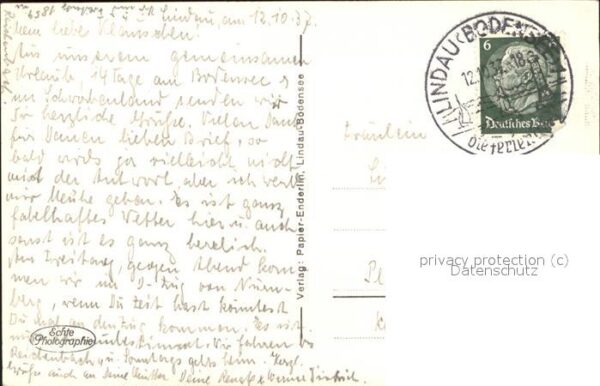 Lindau, am 12.10.37.
Mein liebes
Aus unserem gemeinsamen
Urlaub, 14 Tage am Bodensee
im Schwabenland senden wir
Dir herzliche Grüße. Vielen Dank
für Deinen lieben Brief, so
bald wirds ja vielleicht nicht
mit der Antwort, aber ich werde
mir Mühe geben. Es ist ganz
fabelhaftes Wetter hier u. auch
sonst ist es ganz herrlich.
Am Freitag, gegen Abend kom-
men wir im D-Zug von Nürn-
berg, wenn Du Zeit hast könntest
Du mal an den Zug kommen. Es ist
Wir fahren bis
Reichenbach u. Sonntags gehts heim. Herzl.
Grüße auch an Deine Mutter. Deine
Echte
Photographie
Verlag: Papier-Enderlin, Lindau-Bodensee
Fräulein
LINDAU (BODENSEE)
12.10.37.-18
6
Deutsches Reich
privacy protection (c)
Datenschutz